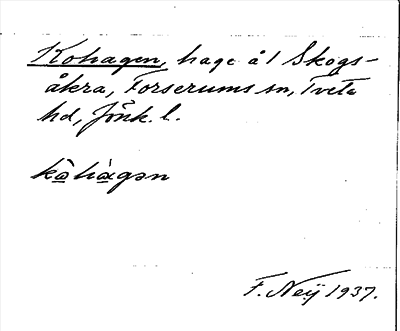 Kohagen, hage å 1 Skogs-
åkra, Forserums sn, Tveta
hd, Jönk. l.
kò̀hàgən
F. Neij 1937.